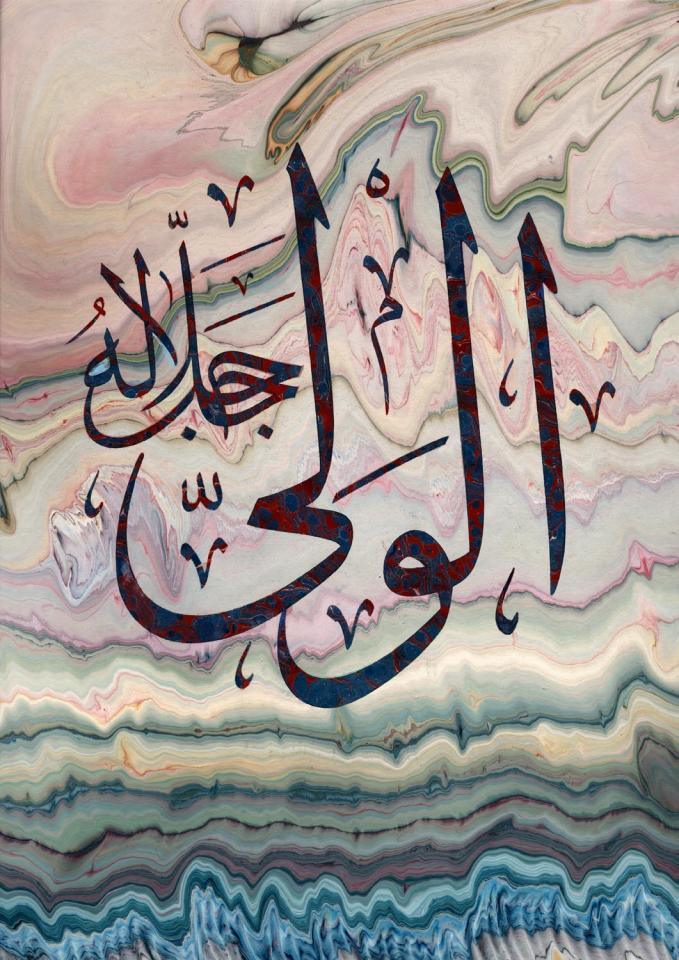 الوليّ
جلّ جلالهُ